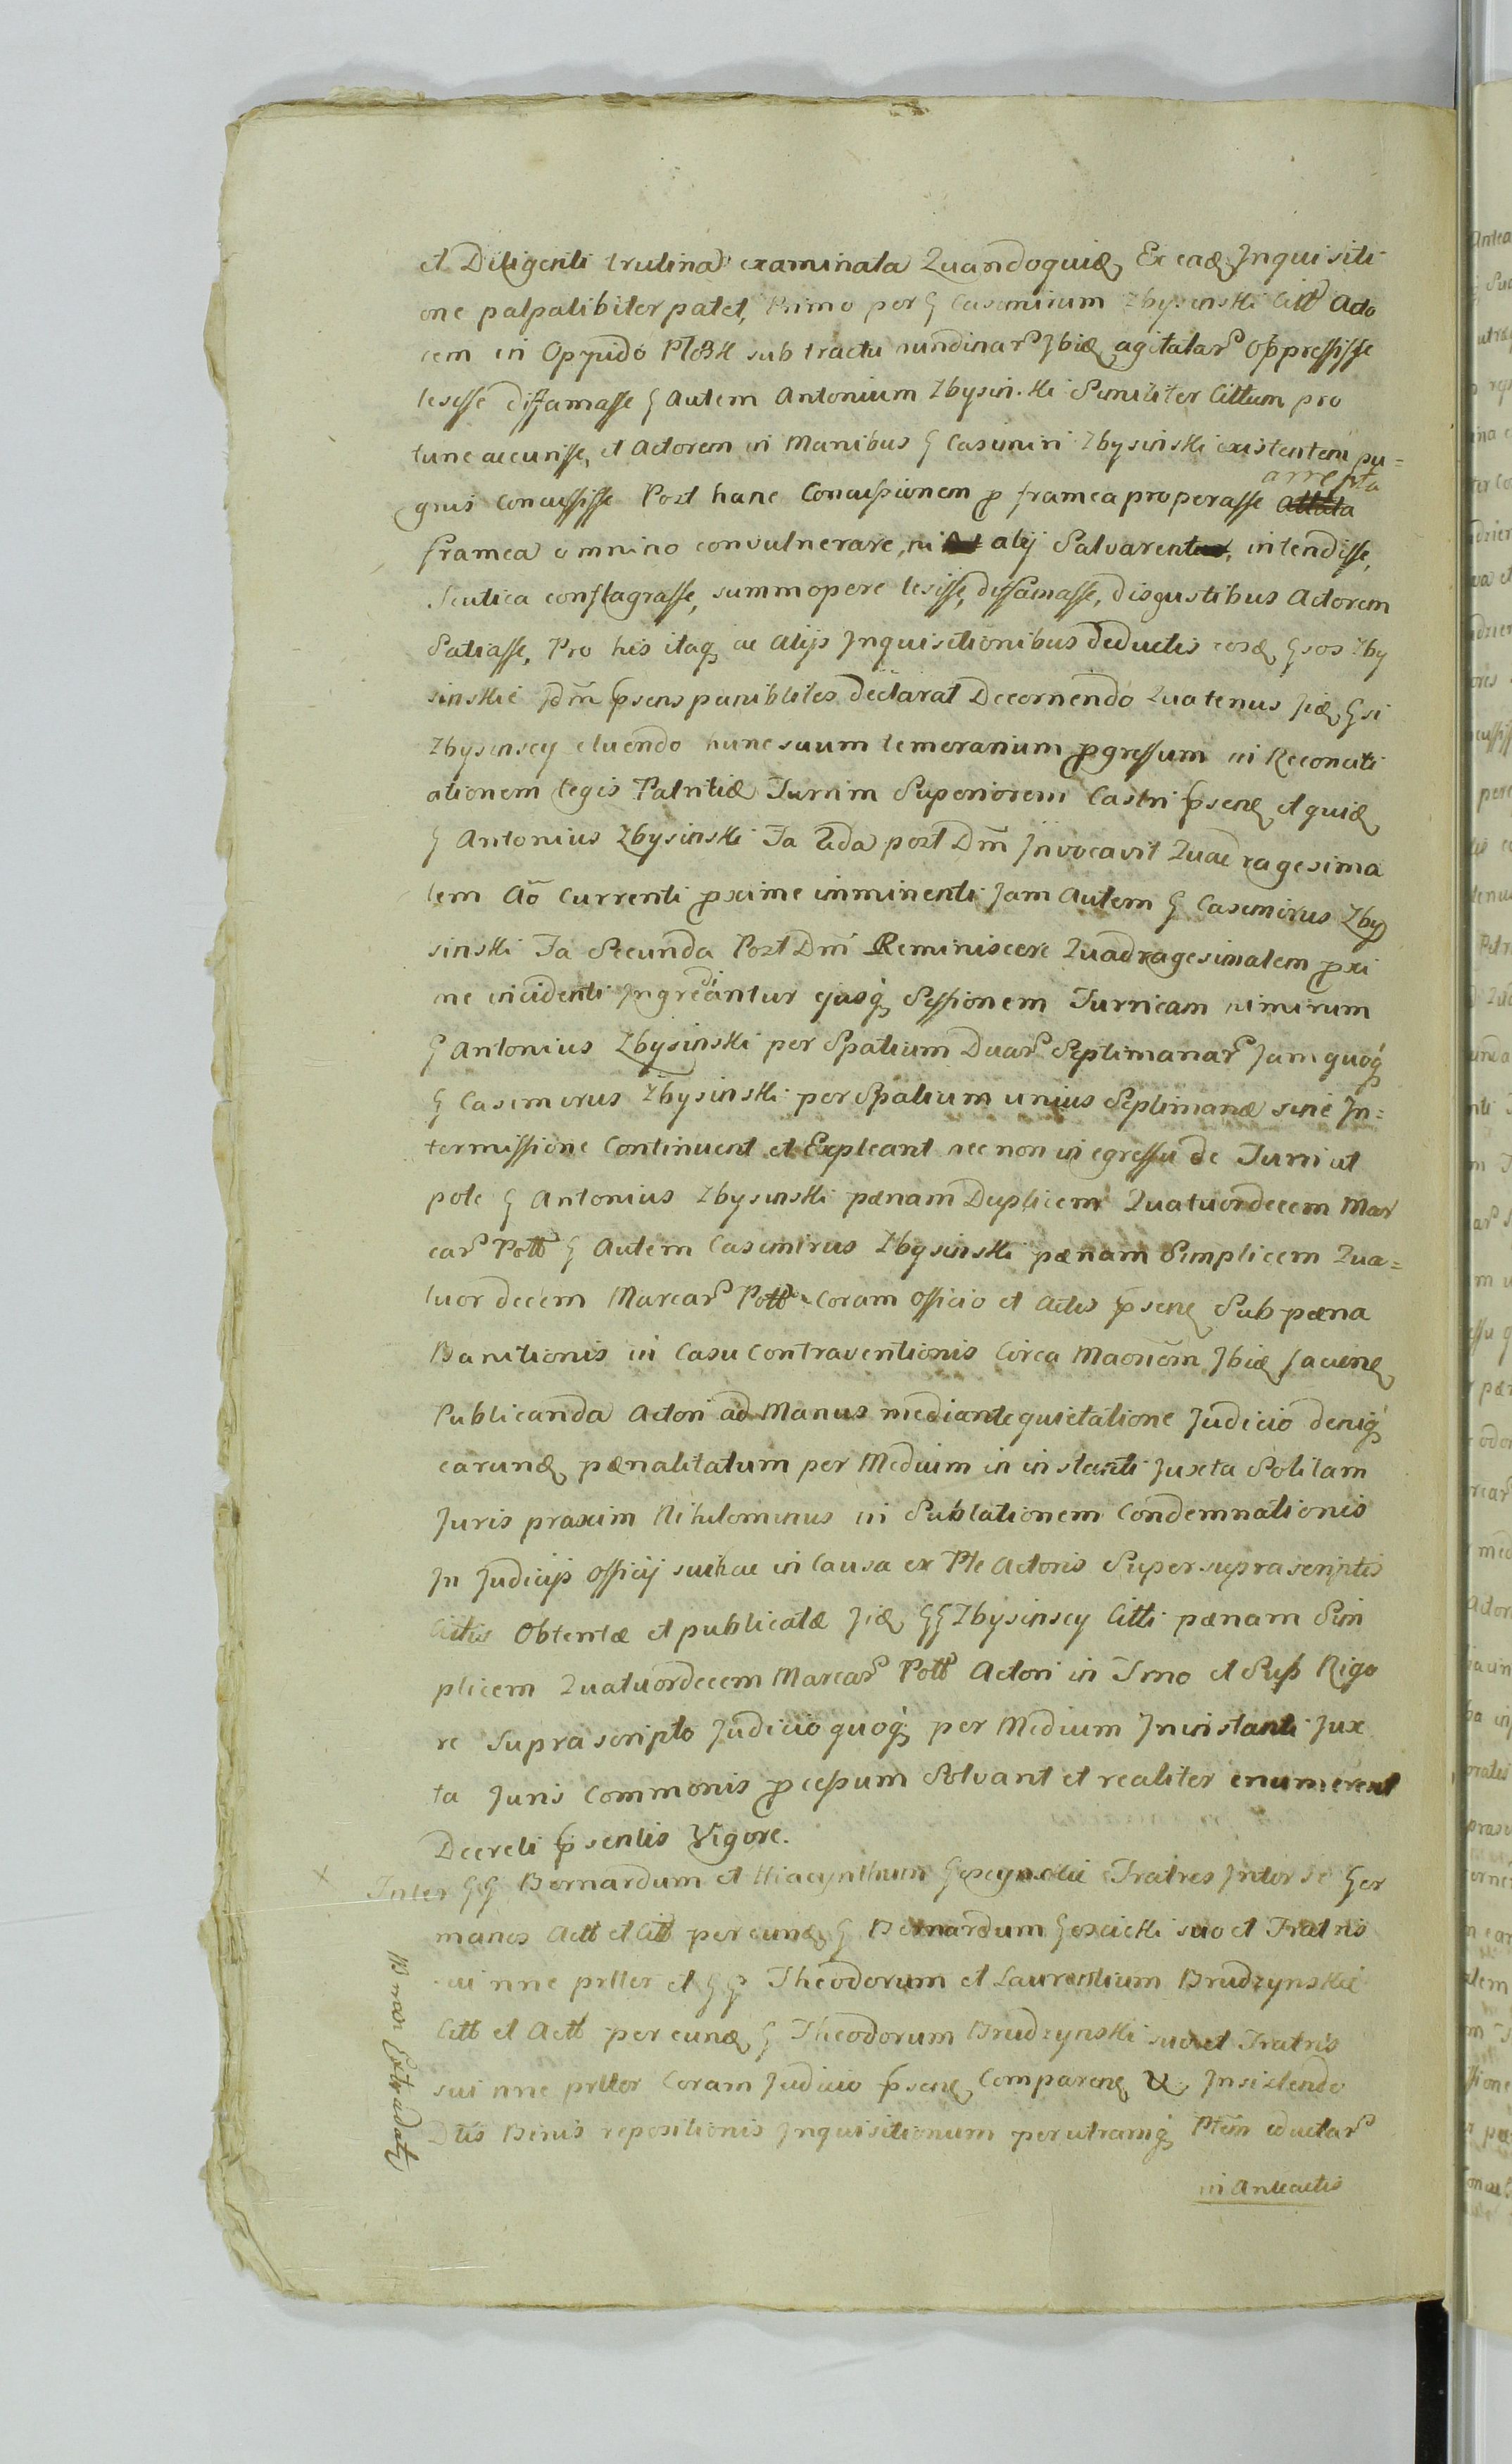 et Diligenti trutina examinata Quandoquid Ex ead Inquisiti
one palpalibiter patet, Primo per G Casimirum Zbysinski Citt Acto
rem in Oppido sub tractu nundinar Ibid agitatar oppressisse
lesisse diffamasse G Autem Antonium Zbysinski Similiter Cittum pro
tunc accurisse, et Actorem in Manibus G Casimiri Zbysinski existentem pu=
gnis concussisse Post hanc Concussionem p framea properasse arrepta
framea omnino convulnerare, ni alij Salvarent, intendisse,
Scutica conflagrasse, summopere lesisse, diffamasse, disgustibus Actorem
Satiasse, Pro his itaq ac Alijs Inquisitionibus deductis eosd Gsos Zby
sinskie Jdm psens punibliles declarat Decernendo Quatenus jid Gsi
Zbysinscy eluendo hunc suum temerarium pgressum in Reconcili
ationem legis Patritiæ Turrim Superiorem Castri psen et quid
G Antonius Zbysinski Fa 2da post Dm Invocavit Quadragesima
lem Ao Currenti pxime imminenti Jam Autem G Casimirus Zby
sinski Fa Secunda Post Dm Reminiscere Quadragesimalem pxi
me incidenti Ingrediantur ejusq Sessionem Turricam nimirum
G Antonius Zbysinski per Spatium Duar Septimanar Jam quoq
G Casimirus Zbysinski per Spatium unius Septimanæ sine In=
termissione Continuent et Expleant nec non in egressu de Turri ut
pote G Antonius Zbysinski pænam Duplicem Quatuordecem Mar
car Poll G Autem Casimirus Zbysinski pænam Simplicem Qua=
tuor decem Marcar Poll Coram Officio et Actis psen Sub pæna
Banitionis in Casu Contraventionis Circa Maonem Ibid facien
Publicanda Actori ad Manus mediante quietatione Judicio deniq
earund pænalitatum per Medium in instanti Juxta Solitam
Juris praxim Nihilominus in Sublationem Condemnationis
In Judicijs Officij sui hac in Causa ex Pte Actoris Super suprascriptis
Cittis Obtentæ et publicatæ jid GG Zbysinscy Citti pænam Sim
plicem Quatuordecem Marcar Poll Actori in Tmo et Sub Rigo
re Suprascripto Judicio quoq per Medium In instanti Jux
ta Juris Commonis pcessum Solvant et realiter enumerent
Decreti psentis Vigore.
Inter GG Bernardum et Hiacynthum Fratres Inter se Ger
manos Actt et Citt per eund G Bernardum suo et Fratris
sui nne prtter et GG Theodorum et Laurentium Brudzynskie
Citt et Actt per eund G Theodorum Brudzynski suo et Fratris
sui nne prtter Coram Judicio psen Comparen &. Insistendo
Dtis Binis repositionis Inquisitionum per utramq Ptem eductar
in Anteactis